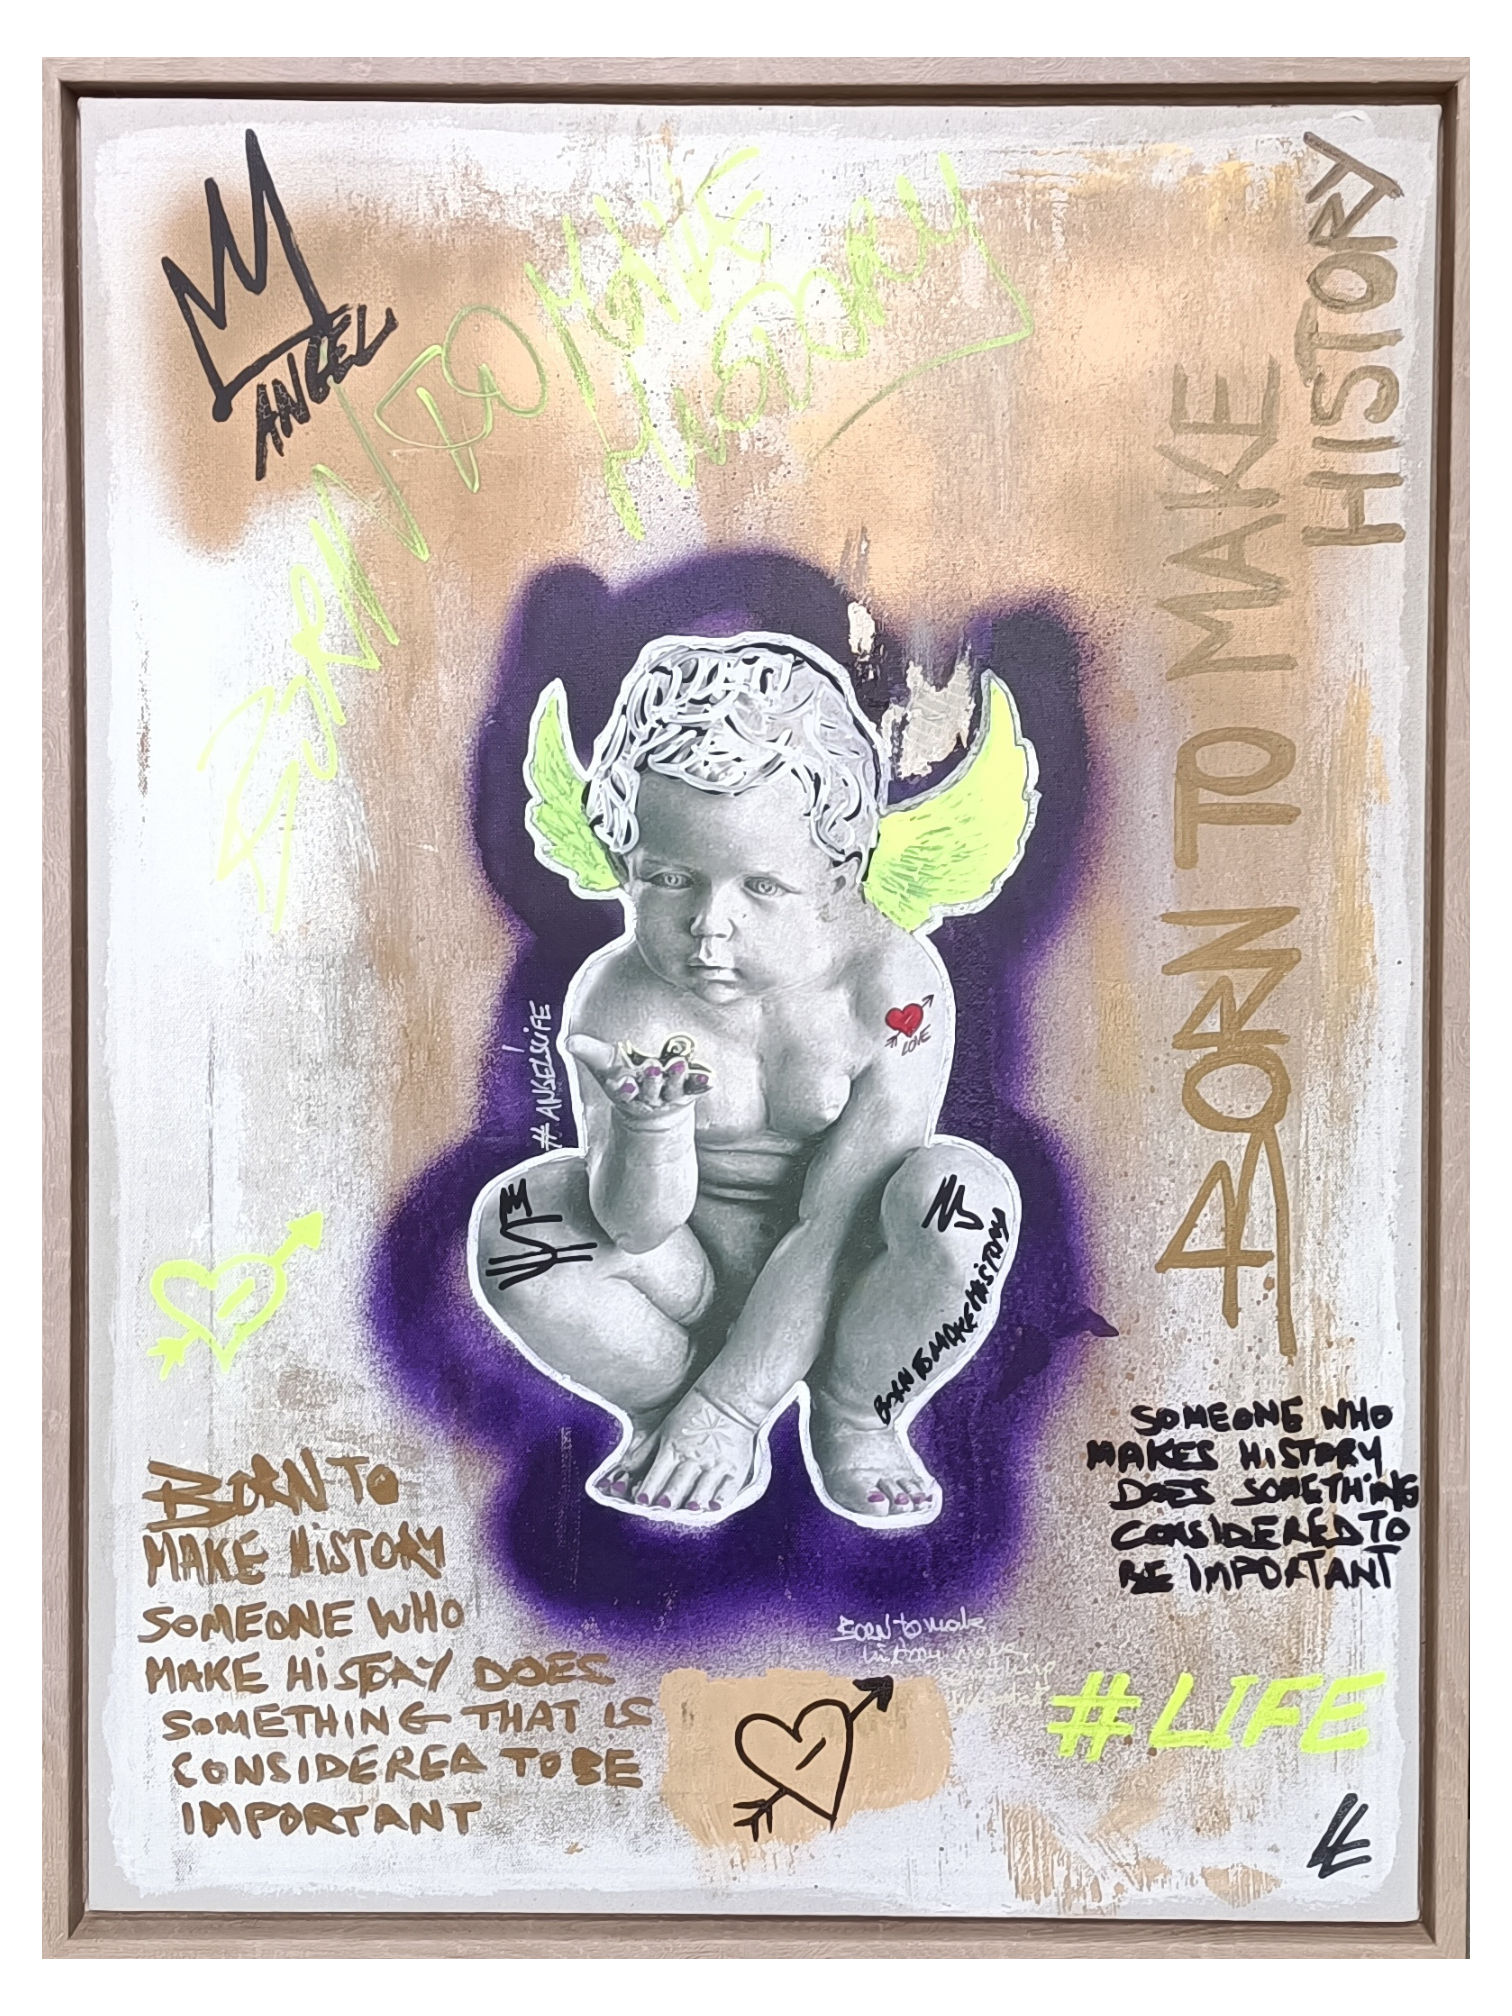 ANGEL
BORN TO MAKE
HISTORY
BORN TO MAKE
HISTORY
#ANGEL'LIFE
LOVE
BORN TO MAKE HISTORY
BORN TO
MAKE HISTORY
SOMEONE WHO
MAKE HISTORY DOES
SOMETHING THAT IS
CONSIDERED TO BE
IMPORTANT
SOMEONE WHO
MAKES HISTORY
DOES SOMETHING
CONSIDERED TO
BE IMPORTANT
BORN to make
history
#LIFE